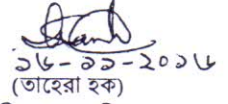 ১৬-১১-২০১৬
(তাহেরা হক)